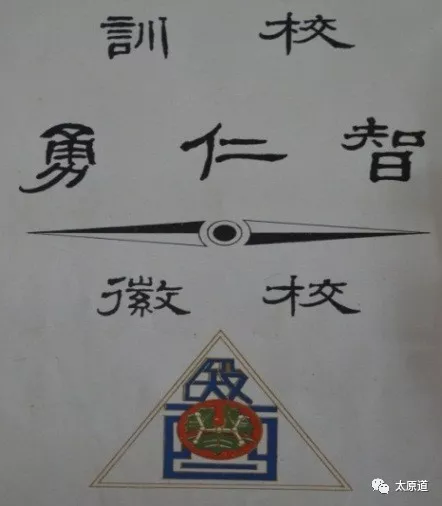 校訓
智仁勇
校徽
太原道